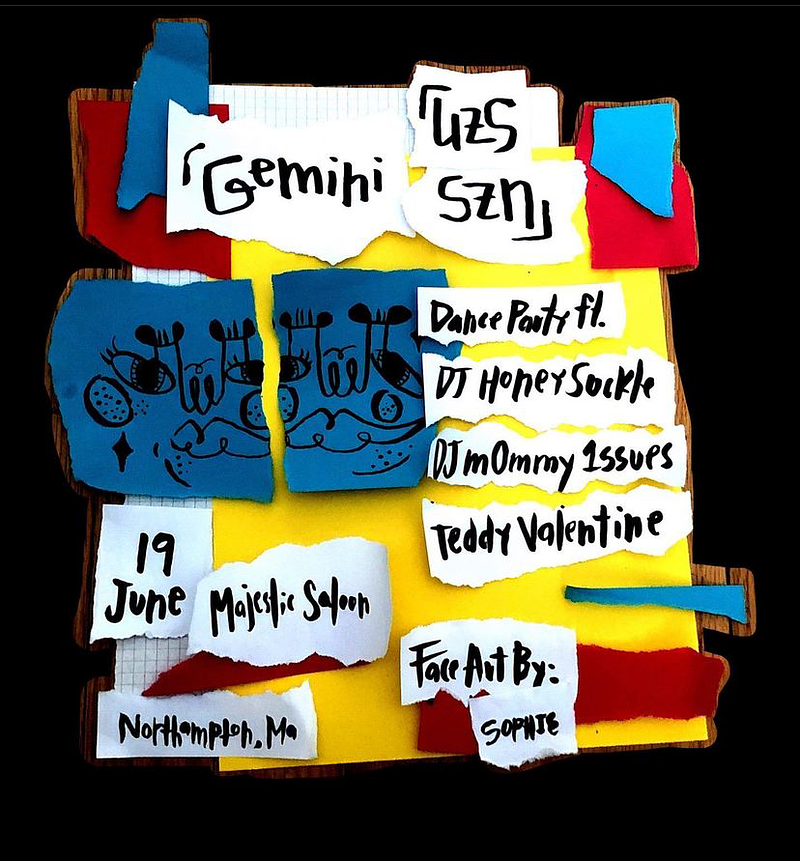 「Gemini
「uzS
SZN」
Dance Party ft.
DJ HoneySuckle
DJ mOmmy 1ssues
Teddy Valentine
19
June
Majestic Saloon
Northampton, Ma
Face Art By:
SOPHIE